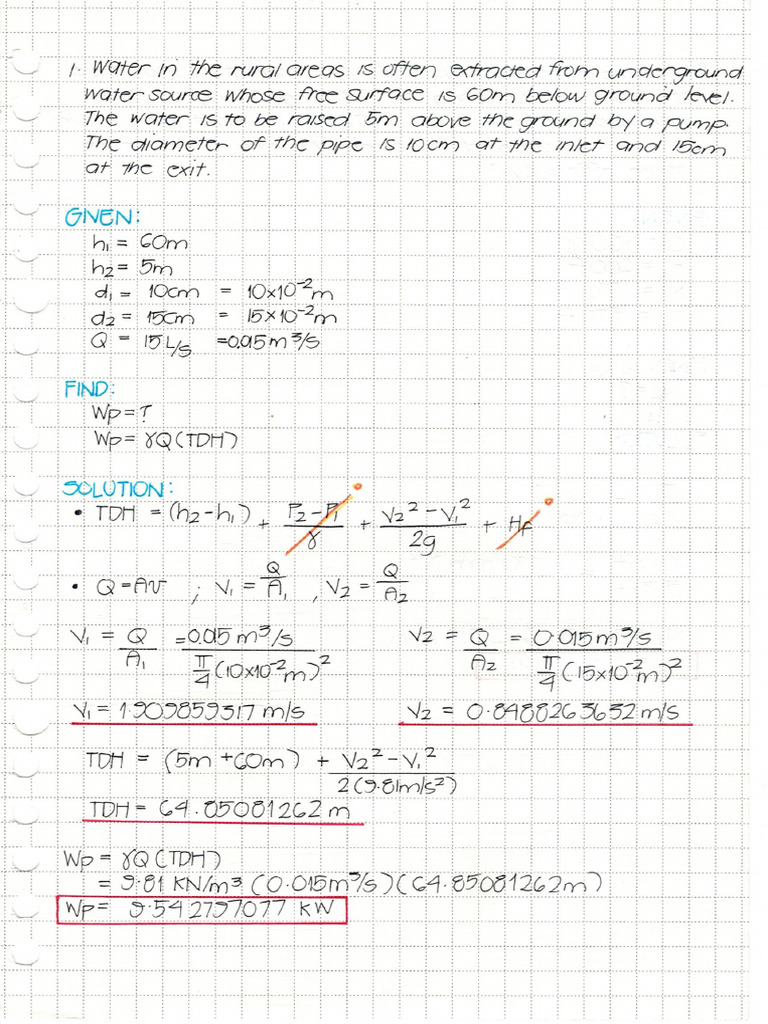 1. Water in the rural areas is often extracted from underground
water source whose free surface is 60m below ground level.
The water is to be raised 5m above the ground by a pump.
The diameter of the pipe is 10cm at the inlet and 15cm
at the exit.
GIVEN:
h₁ = 60m
h₂ = 5m
d₁ = 10cm = 10×10⁻²m
d₂ = 15cm = 15×10⁻²m
Q = 15 L/s = 0.015 m³/s
FIND:
Wp = ?
Wp = γQ(TDH)
SOLUTION:
• TDH = (h₂-h₁) + (P₂-P₁)/γ + (V₂² - V₁²)/2g + Hf
• Q = Av ; V₁ = Q/A₁ , V₂ = Q/A₂
V₁ = Q/A₁ = 0.015 m³/s / π/4 (10×10⁻²m)² V₂ = Q/A₂ = 0.015 m³/s / π/4 (15×10⁻²m)²
V₁ = 1.909859317 m/s V₂ = 0.8488263632 m/s
TDH = (5m + 60m) + (V₂² - V₁²)/2(9.81m/s²)
TDH = 64.85081262 m
Wp = γQ(TDH)
= 9.81 KN/m³ (0.015m³/s)(64.85081262m)
Wp = 9.542797077 KW